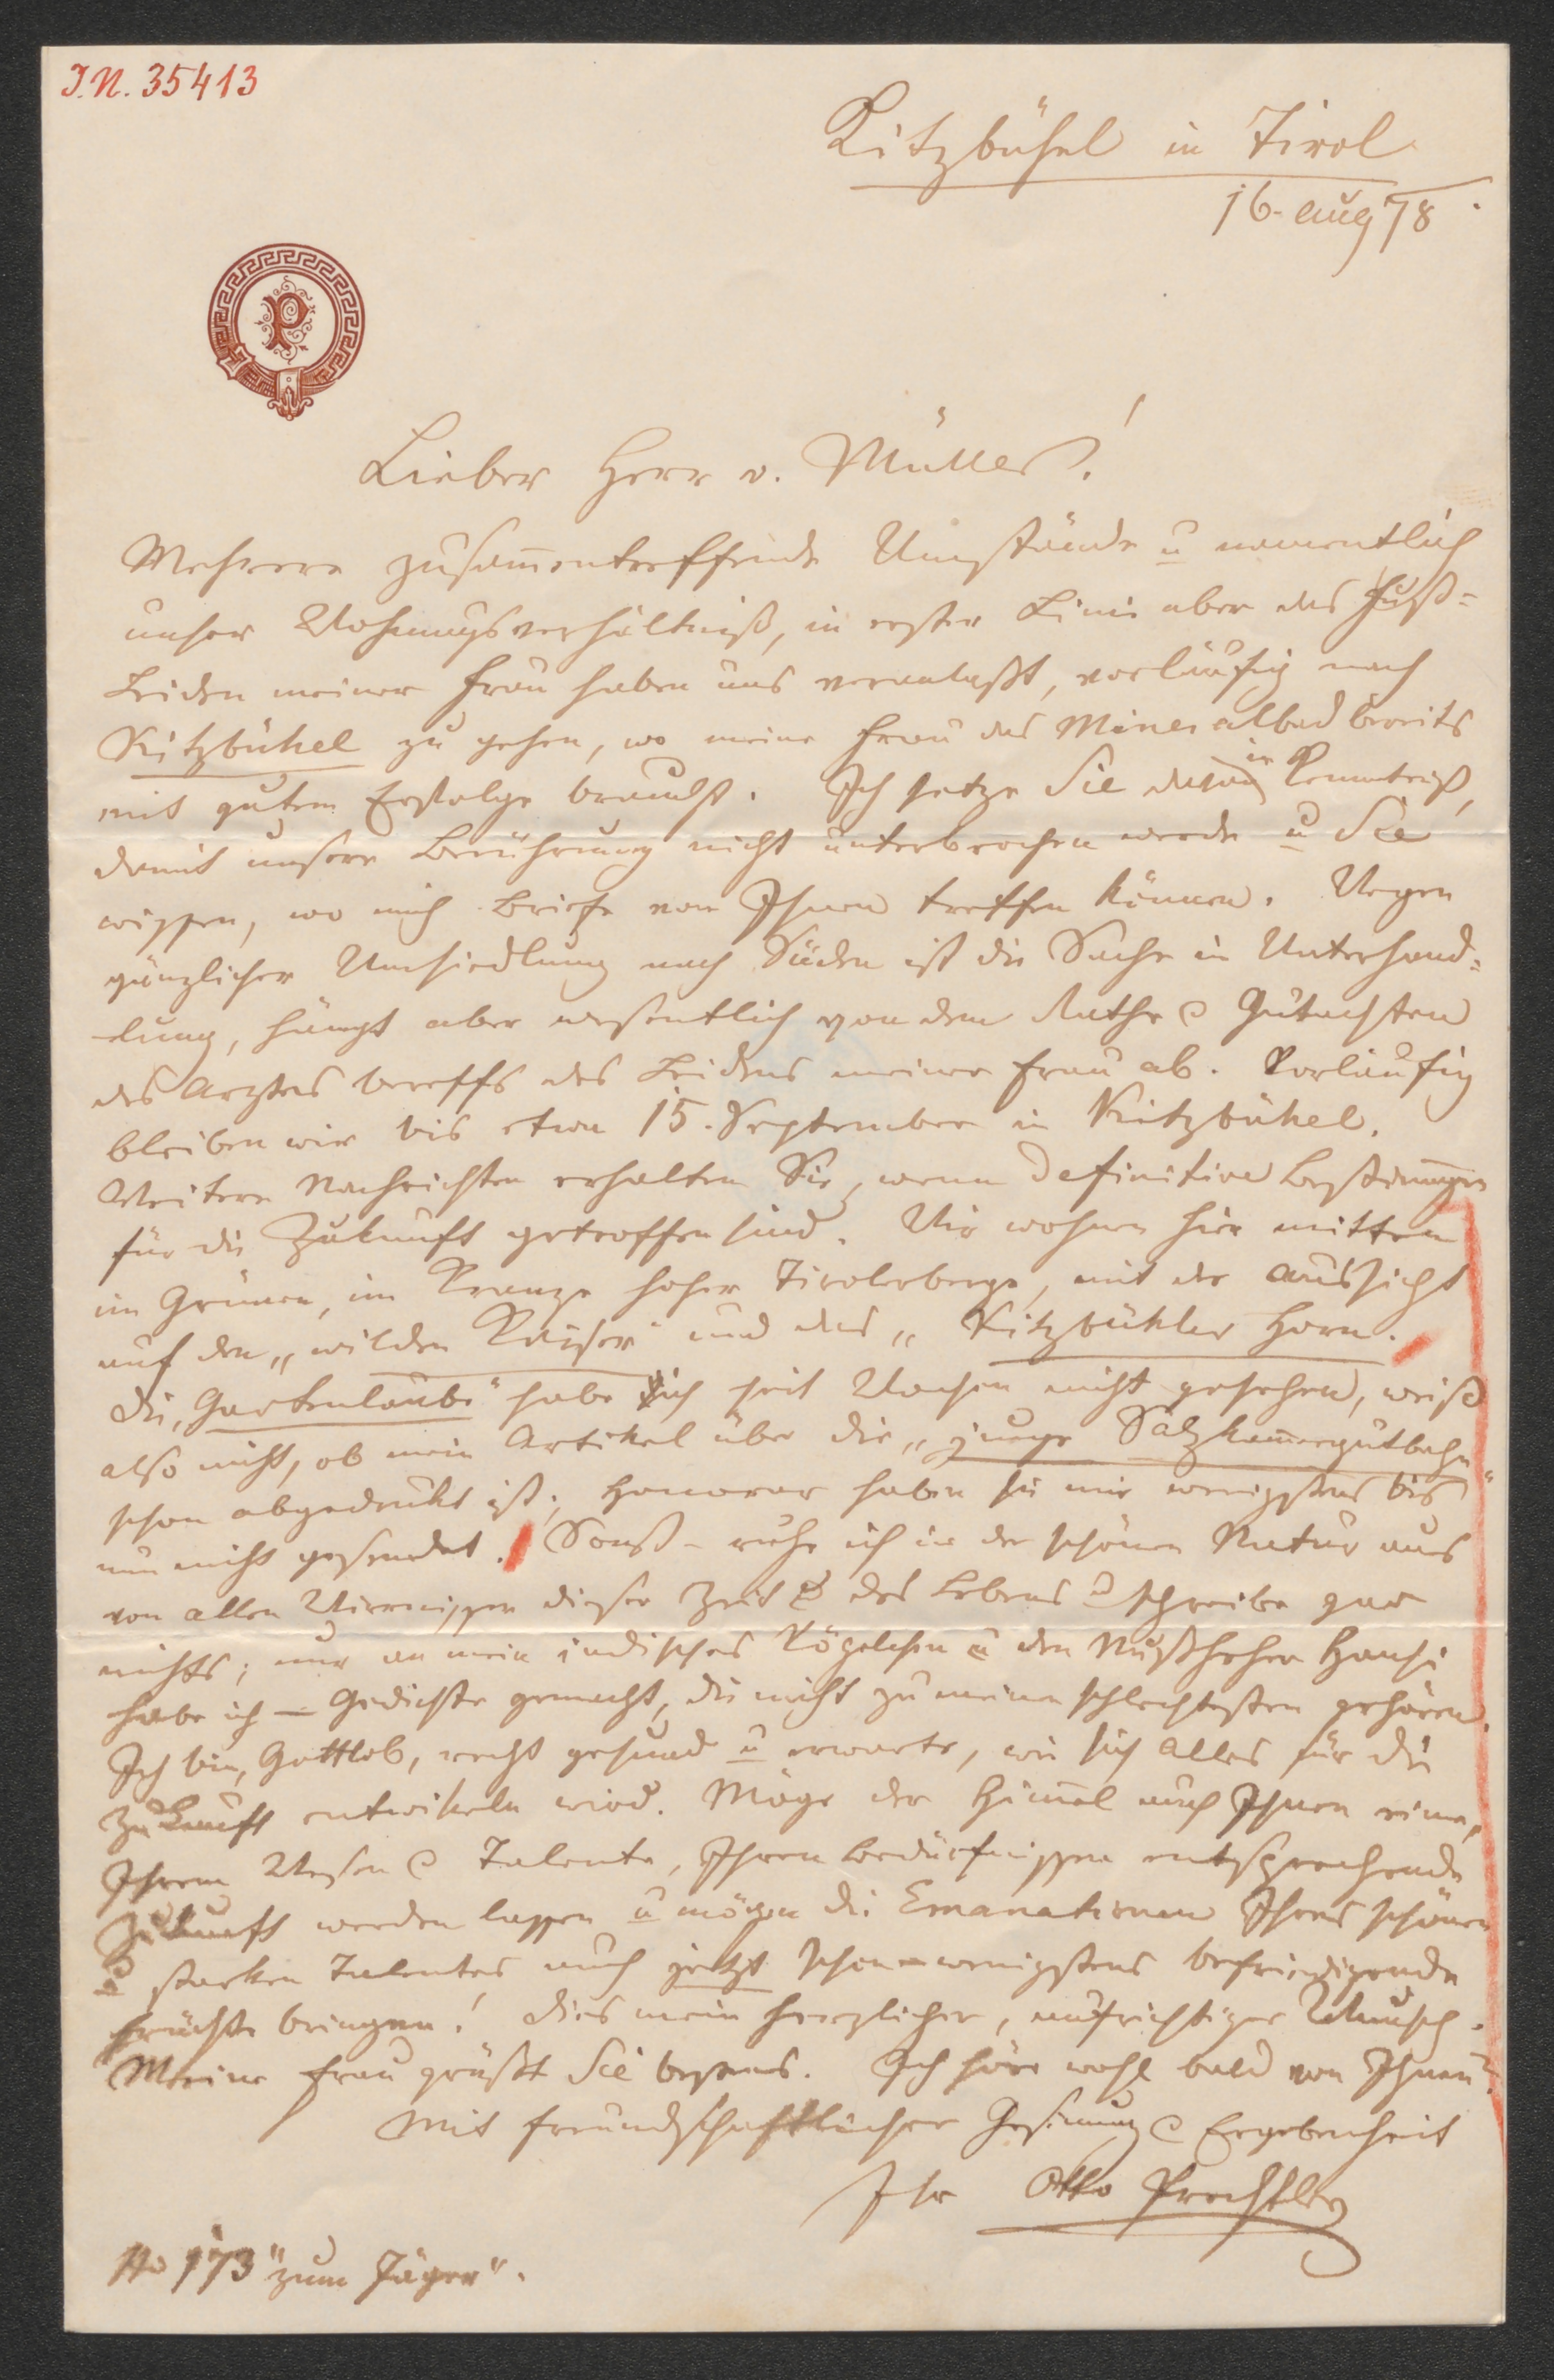 I.N. 35413
Kitzbühel in Tirol
16. Aug 78.
P
Lieber Herr v. Müller!
Mehrere zusam̄entreffende Umstände u namentlich
unser Wohnungsverhältniß, in erster Linie aber das Fuß=
Leiden meiner Frau haben uns veranlaßt, vorläufig nach
Kitzbühel zu gehen, wo meine Frau das Mineralbad bereits
mit gutem Erfolge braucht. Ich setze Sie davon in Kenntniß,
damit unsere Berührung nicht unterbrochen werde u Sie
wissen, wo mich Briefe von Ihnen treffen können. Wegen
gänzlicher Umsiedlung nach Süden ist die Sache in Unterhand=
lung, hängt aber wesentlich von dem Rathe & Gutachten
des Arztes betreffs des Leidens meiner Frau ab. Vorläufig
bleiben wir bis etwa 15. September in Kitzbühel.
Weitere Nachrichten erhalten Sie, wenn definitive Bestim̄ungen
für die Zukunft getroffen sind. Wir wohnen hier mitten
im Grünen, im Kranze hoher Tirolerberge, mit der Aussicht
auf den „wilden Kaiser" und das „Kitzbühler Horn.
Die „Gartenlaube" habe ich seit Wochen nicht gesehen, weiß
also nicht, ob mein Artikel über die „junge Salzkam̄ergutbahn"
schon abgedrukt ist; Honorar haben sie mir wenigstens bis
nun nicht gesendet. Sonst – ruhe ich in der schönen Natur aus
von allen Wirrnissen dieser Zeit & des Lebens u schreibe gar
nichts; nur an mein indisches Vögelchen u den Nußheher Hansi
habe ich — Gedichte gemacht, die nicht zu meinen schlechtesten gehören.
Ich bin, Gottlob, recht gesund u erwarte, wie sich Alles für die
Zukunft entwikeln wird. Möge der Him̄el auch Ihnen eine,
Ihrem Wesen & Talente, Ihren Bedürfnissen entsprechende
Zukunft werden lassen u mögen die Emanationen Ihres schönen
u starken Talentes, auch jetzt schon – wenigstens befriedigende
Früchte bringen! Dies mein herzlicher, aufrichtiger Wunsch.
Meine Frau grüßt Sie bestens. Ich höre wohl bald von Ihnen?
Mit freundschaftlicher Gesinnung & Ergebenheit
Ihr Otto Prechtler
No 173 "zum Jäger".